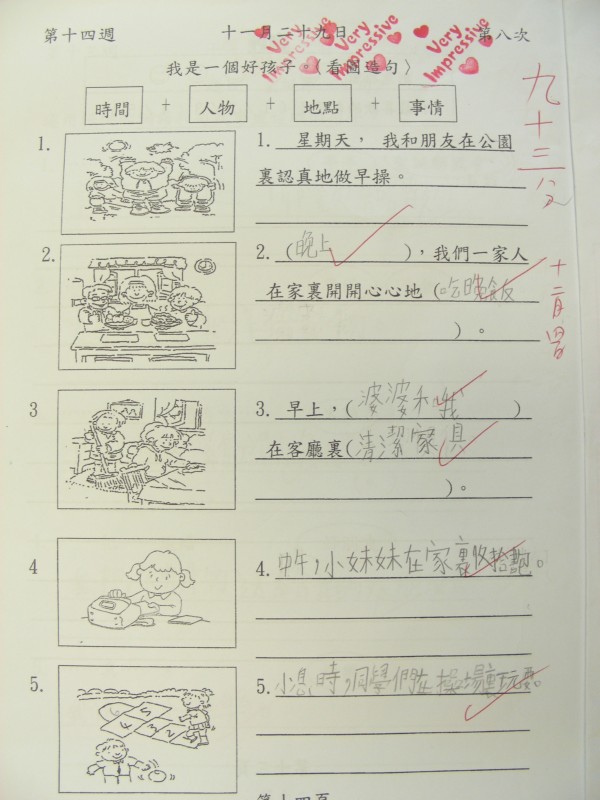 第十四週 十一月二十九日 第八次
Very Impressive Very Impressive Very Impressive
我是一個好孩子。〈看圖造句〉
時間 + 人物 + 地點 + 事情
九十三分
1. 1. 星期天， 我和朋友在公園
裏認真地做早操。
2. 2. (晚上 )，我們一家人
在家裏開開心心地 (吃晚飯
)。
十二月四日
3 3. 早上，(婆婆和我 )
在客廳裏(清潔家具
)。
4 4. 中午，小妹妹在家裏收拾。
5. 5. 小息時，同學們在操場玩耍。
第十四頁